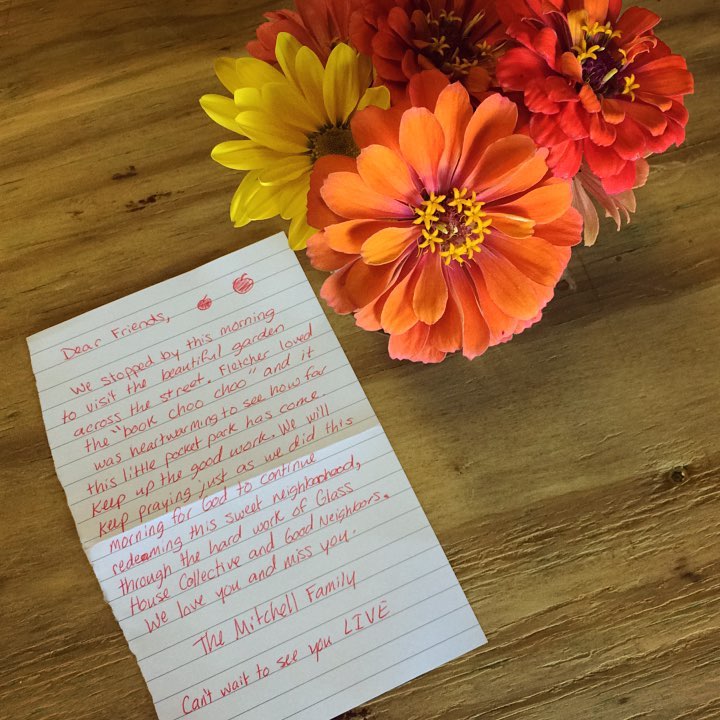 Dear Friends,
We stopped by this morning
to visit the beautiful garden
across the street. Fletcher loved
the "book choo choo" and it
was heartwarming to see how far
this little pocket park has come.
Keep up the good work. We will
keep praying just as we did this
morning for God to continue
redeeming this sweet neighborhood,
through the hard work of Glass
House Collective and Good Neighbors.
We love you and miss you.
The Mitchell Family
Can't wait to see you LIVE